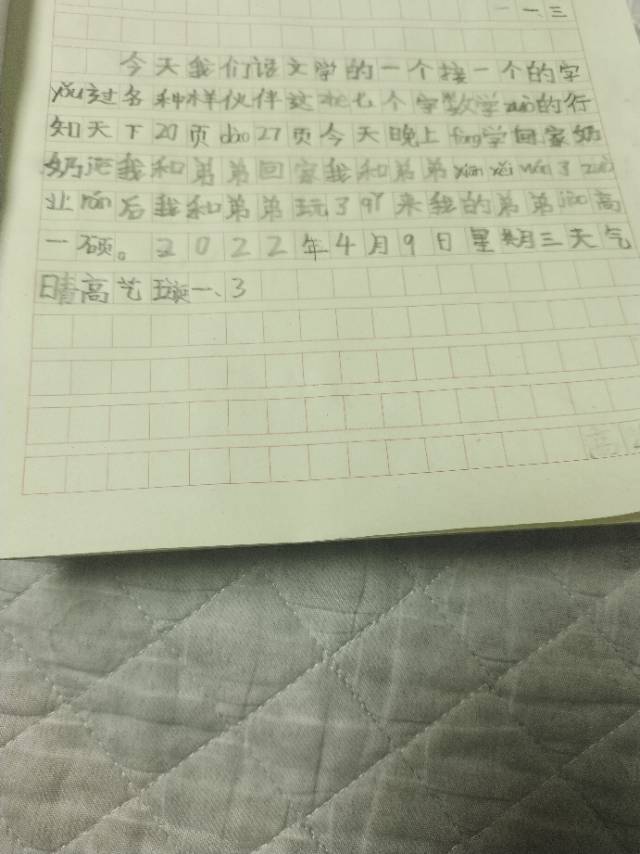 一 一、三
今天我们语文学的一个接一个的字
yǒu 过各种样伙伴这 七个字数学zuò的行
知天下20页dào27页今天晚上fàng学回家奶
奶 我和弟弟回家我和弟弟xiān xiě wán了zuò
业rán后我和弟弟玩了 来我的弟弟 高
一 。2022年4月9日星期三天气
晴高艺璇一、3